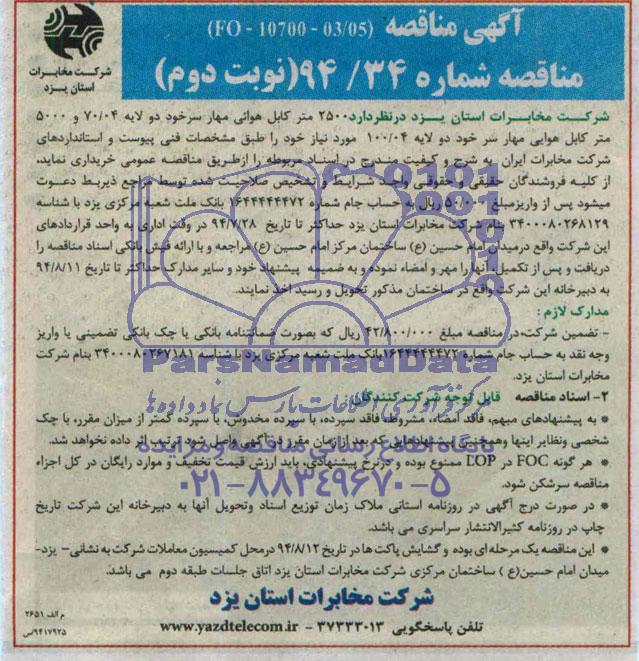 آگهی مناقصه (FO - 10700 - 03/05)
مناقصه شماره ۹۴/۳۴ (نوبت دوم)
شرکت مخابرات
استان یزد
شرکت مخابرات استان یزد درنظردارد ۲۵۰۰ متر کابل هوائی مهار سرخود دو لایه ۷۰/۰۴ و ۵۰۰۰
متر کابل هوایی مهار سر خود دو لایه ۱۰۰/۰۴ مورد نیاز خود را طبق مشخصات فنی پیوست و استانداردهای
شرکت مخابرات ایران به شرح و کیفیت مندرج در اسناد مربوطه را ازطریق مناقصه عمومی خریداری نماید،
از کلیه فروشندگان حقیقی و حقوقی واجد شرایط و تشخیص صلاحیت شده توسط مراجع ذیربط دعوت
میشود پس از واریزمبلغ ۵۰/۰۰۰ ریال به حساب جام شماره ۱۶۴۴۴۴۴۴۷۲ بانک ملت شعبه مرکزی یزد با شناسه
۳۴۰۰۰۸۰۲۶۸۱۲۹ بنام شرکت مخابرات استان یزد حداکثر تا تاریخ ۹۴/۷/۲۸ در وقت اداری به واحد قراردادهای
این شرکت واقع درمیدان امام حسین (ع) ساختمان مرکز امام حسین (ع) مراجعه و با ارائه فیش بانکی اسناد مناقصه را
دریافت و پس از تکمیل، آنها را مهر و امضاء نموده و به ضمیمه پیشنهاد خود و سایر مدارک حداکثر تا تاریخ ۹۴/۸/۱۱
به دبیرخانه این شرکت واقع در ساختمان مذکور تحویل و رسید اخذ نمایند.
مدارک لازم :
- تضمین شرکت در مناقصه مبلغ ۴۲/۸۰۰/۰۰۰ ریال که بصورت ضمانتنامه بانکی یا چک بانکی تضمینی یا واریز
وجه نقد به حساب جام شماره ۱۶۴۴۴۴۴۴۷۲ بانک ملت شعبه مرکزی یزد با شناسه ۳۴۰۰۰۸۰۲۶۷۱۸۱ بنام شرکت
مخابرات استان یزد.
۲- اسناد مناقصه قابل توجه شرکت کنندگان:
* به پیشنهادهای مبهم، فاقد امضاء، مشروط، فاقد سپرده، با سپرده مخدوش، با سپرده کمتر از میزان مقرر، با چک
شخصی ونظایر اینها وهمچنین پیشنهادهایی که بعد از زمان مقرر در آگهی واصل شود ترتیب اثر داده نخواهد شد.
* هر گونه FOC در LOP ممنوع بوده و درنرخ پیشنهادی، باید ارزش قیمت تخفیف و موارد رایگان در کل اجزاء
مناقصه سرشکن شود.
* در صورت درج آگهی در روزنامه استانی ملاک زمان توزیع اسناد وتحویل آنها به دبیرخانه این شرکت تاریخ
چاپ در روزنامه کثیرالانتشار سراسری می باشد.
* این مناقصه یک مرحله ای بوده و گشایش پاکت ها در تاریخ ۹۴/۸/۱۲ درمحل کمیسیون معاملات شرکت به نشانی- یزد-
میدان امام حسین(ع) ساختمان مرکزی شرکت مخابرات استان یزد اتاق جلسات طبقه دوم می باشد.
شرکت مخابرات استان یزد
تلفن پاسخگویی ۳۷۲۳۳۰۱۳ - www.yazdtelecom.ir
م الف ۲۶۵۱
۹۴۱۷۹۲۵/س
ParsNamadData
مرکز فرآوری اطلاعات پارس نماد داده ها
پایگاه اطلاع رسانی مناقصه و مزایده
۰۲۱-۸۸۳۴۹۶۷۰-۵